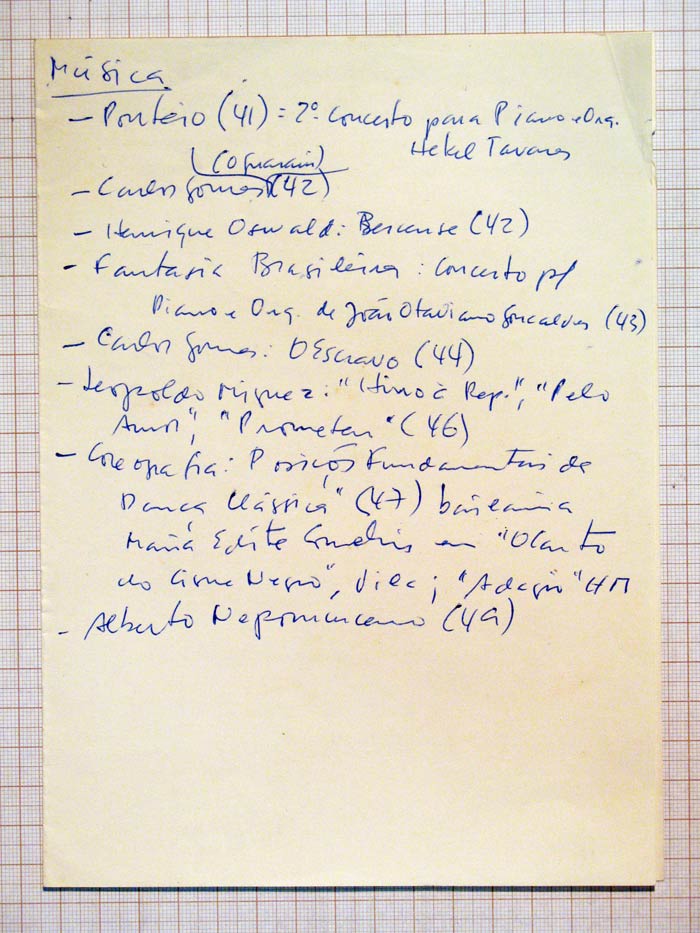 Música
- Ponteio (41) = 2º Concerto para Piano e Orq.
Hekel Tavares
(O Guarani)
- Carlos Gomes (42)
- Henrique Oswald: Berceuse (42)
- Fantasia Brasileira: Concerto p/
Piano e Orq. de João Otaviano Goncalves (43)
- Carlos Gomes: O Escravo (44)
- Leopoldo Miguez: "Hino à Rep.", "Pelo
Amor", "Prometeu" (46)
- Coreografia: Posições Fundamentais da
Dança Clássica" (47) bailarina
Maria Edite em "O Canto
do Cisne Negro", Vila; "Adagio" HM
- Alberto Nepomuceno (49)